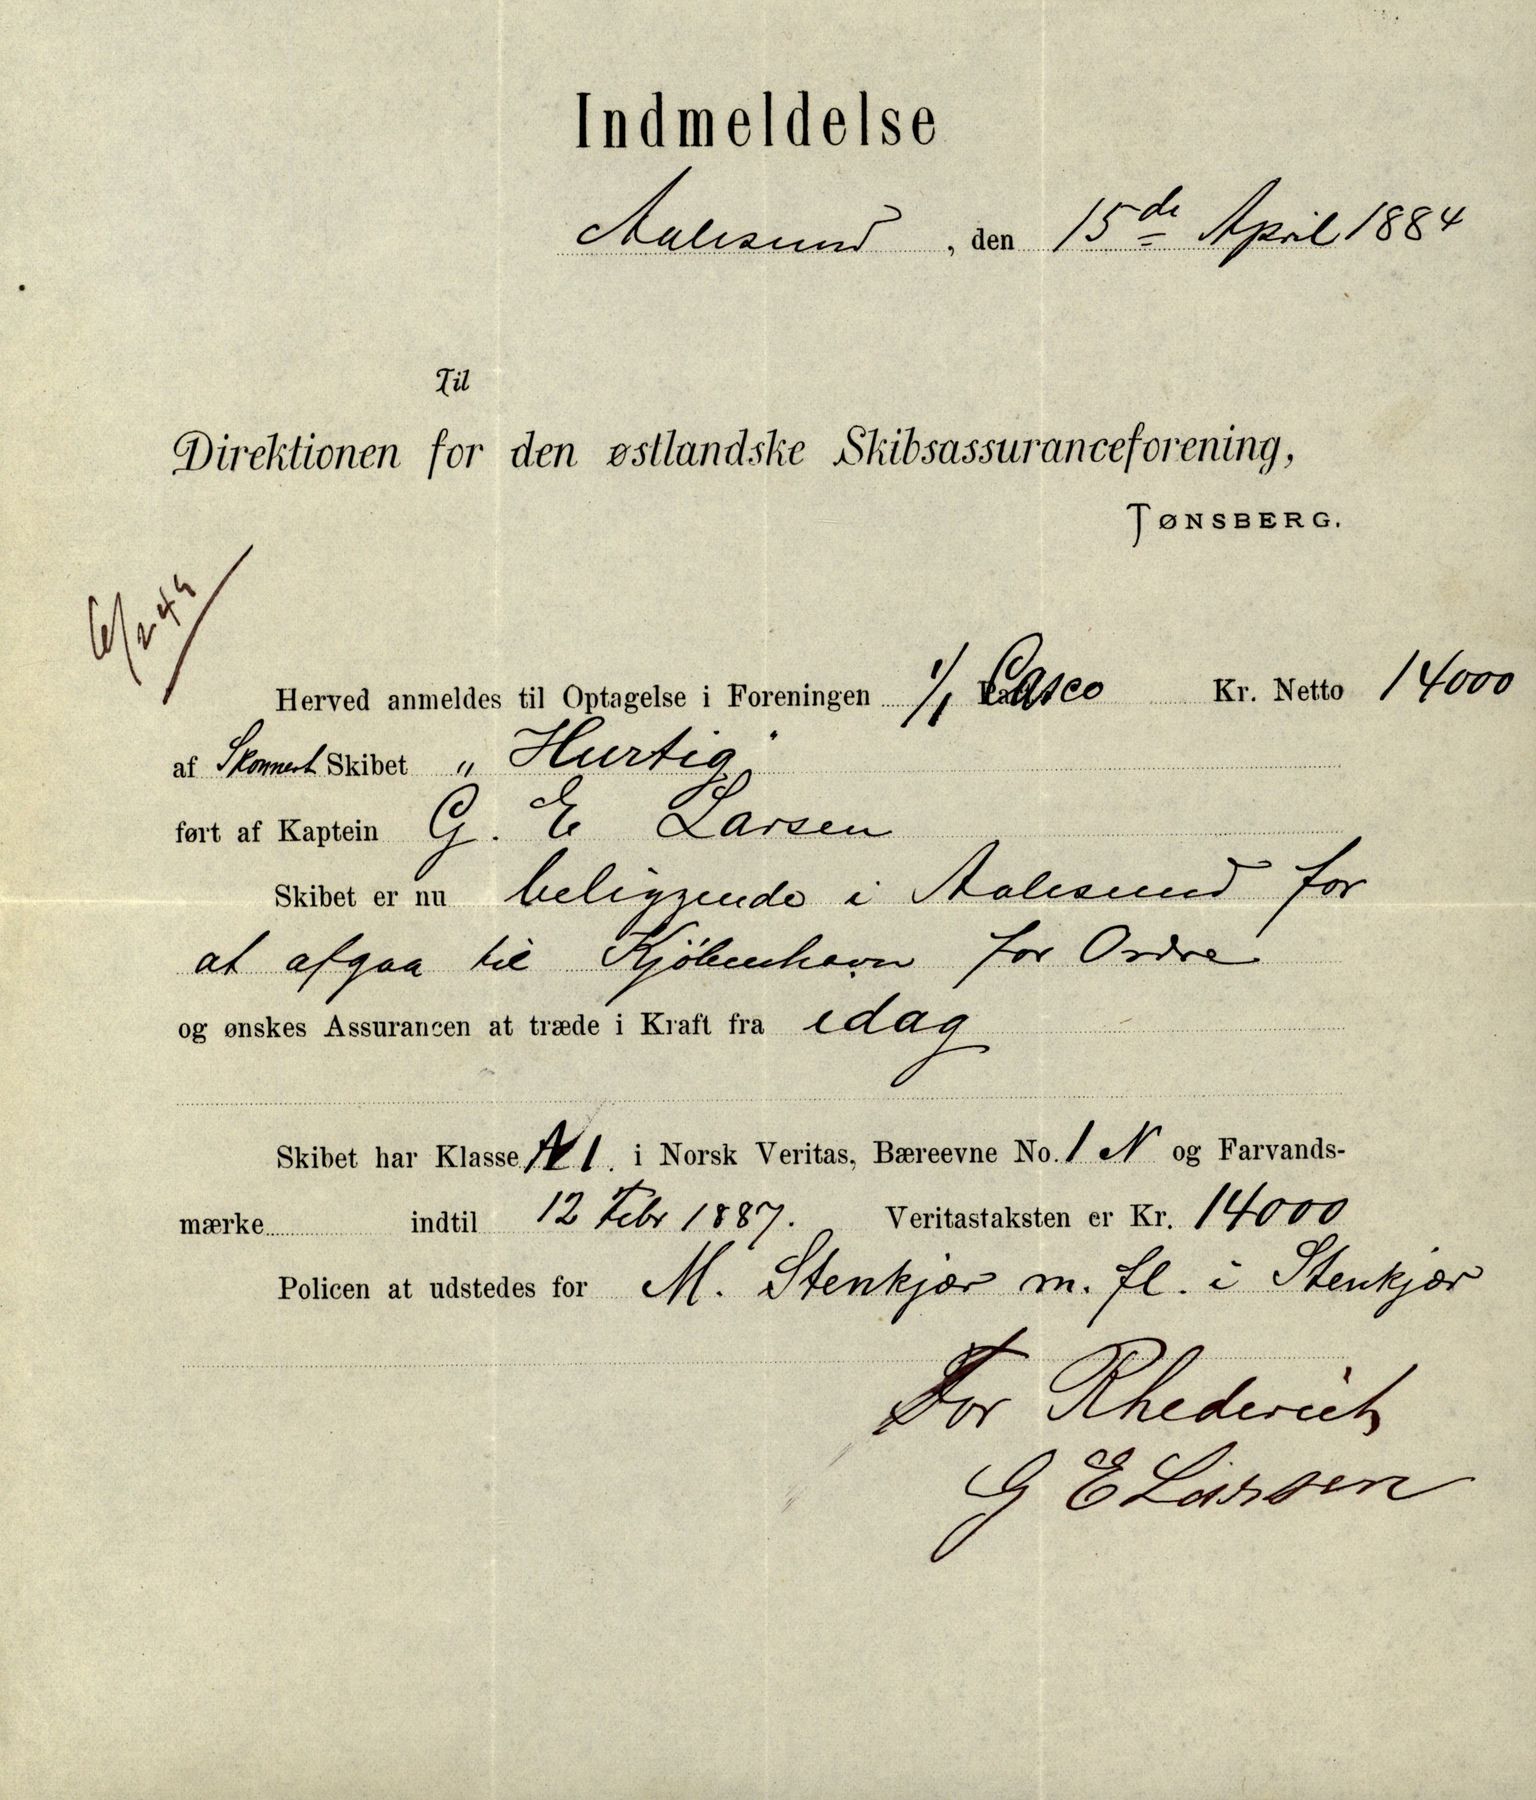 Indmeldelse
Aalesund, den 15de April 1884
Til
Direktionen for den østlandske Skibsassuranceforening,
TØNSBERG.
Herved anmeldes til Optagelse i Foreningen 1/1 Casco Kr. Netto 14000
af Skonnert Skibet „ Hurtig"
ført af Kaptein G. E Larsen
Skibet er nu beliggende i Aalesund for
at afgaa til Kjøbenhavn for Ordre
og ønskes Assurancen at træde i Kraft fra idag
Skibet har Klasse A 1. i Norsk Veritas, Bæreevne No. 1 N og Farvands-
mærke indtil 12 Febr 1887. Veritastaksten er Kr. 14000
Policen at udstedes for M. Stenkjær m. fl. i Stenkjær
For Rhederiet
G E Larsen